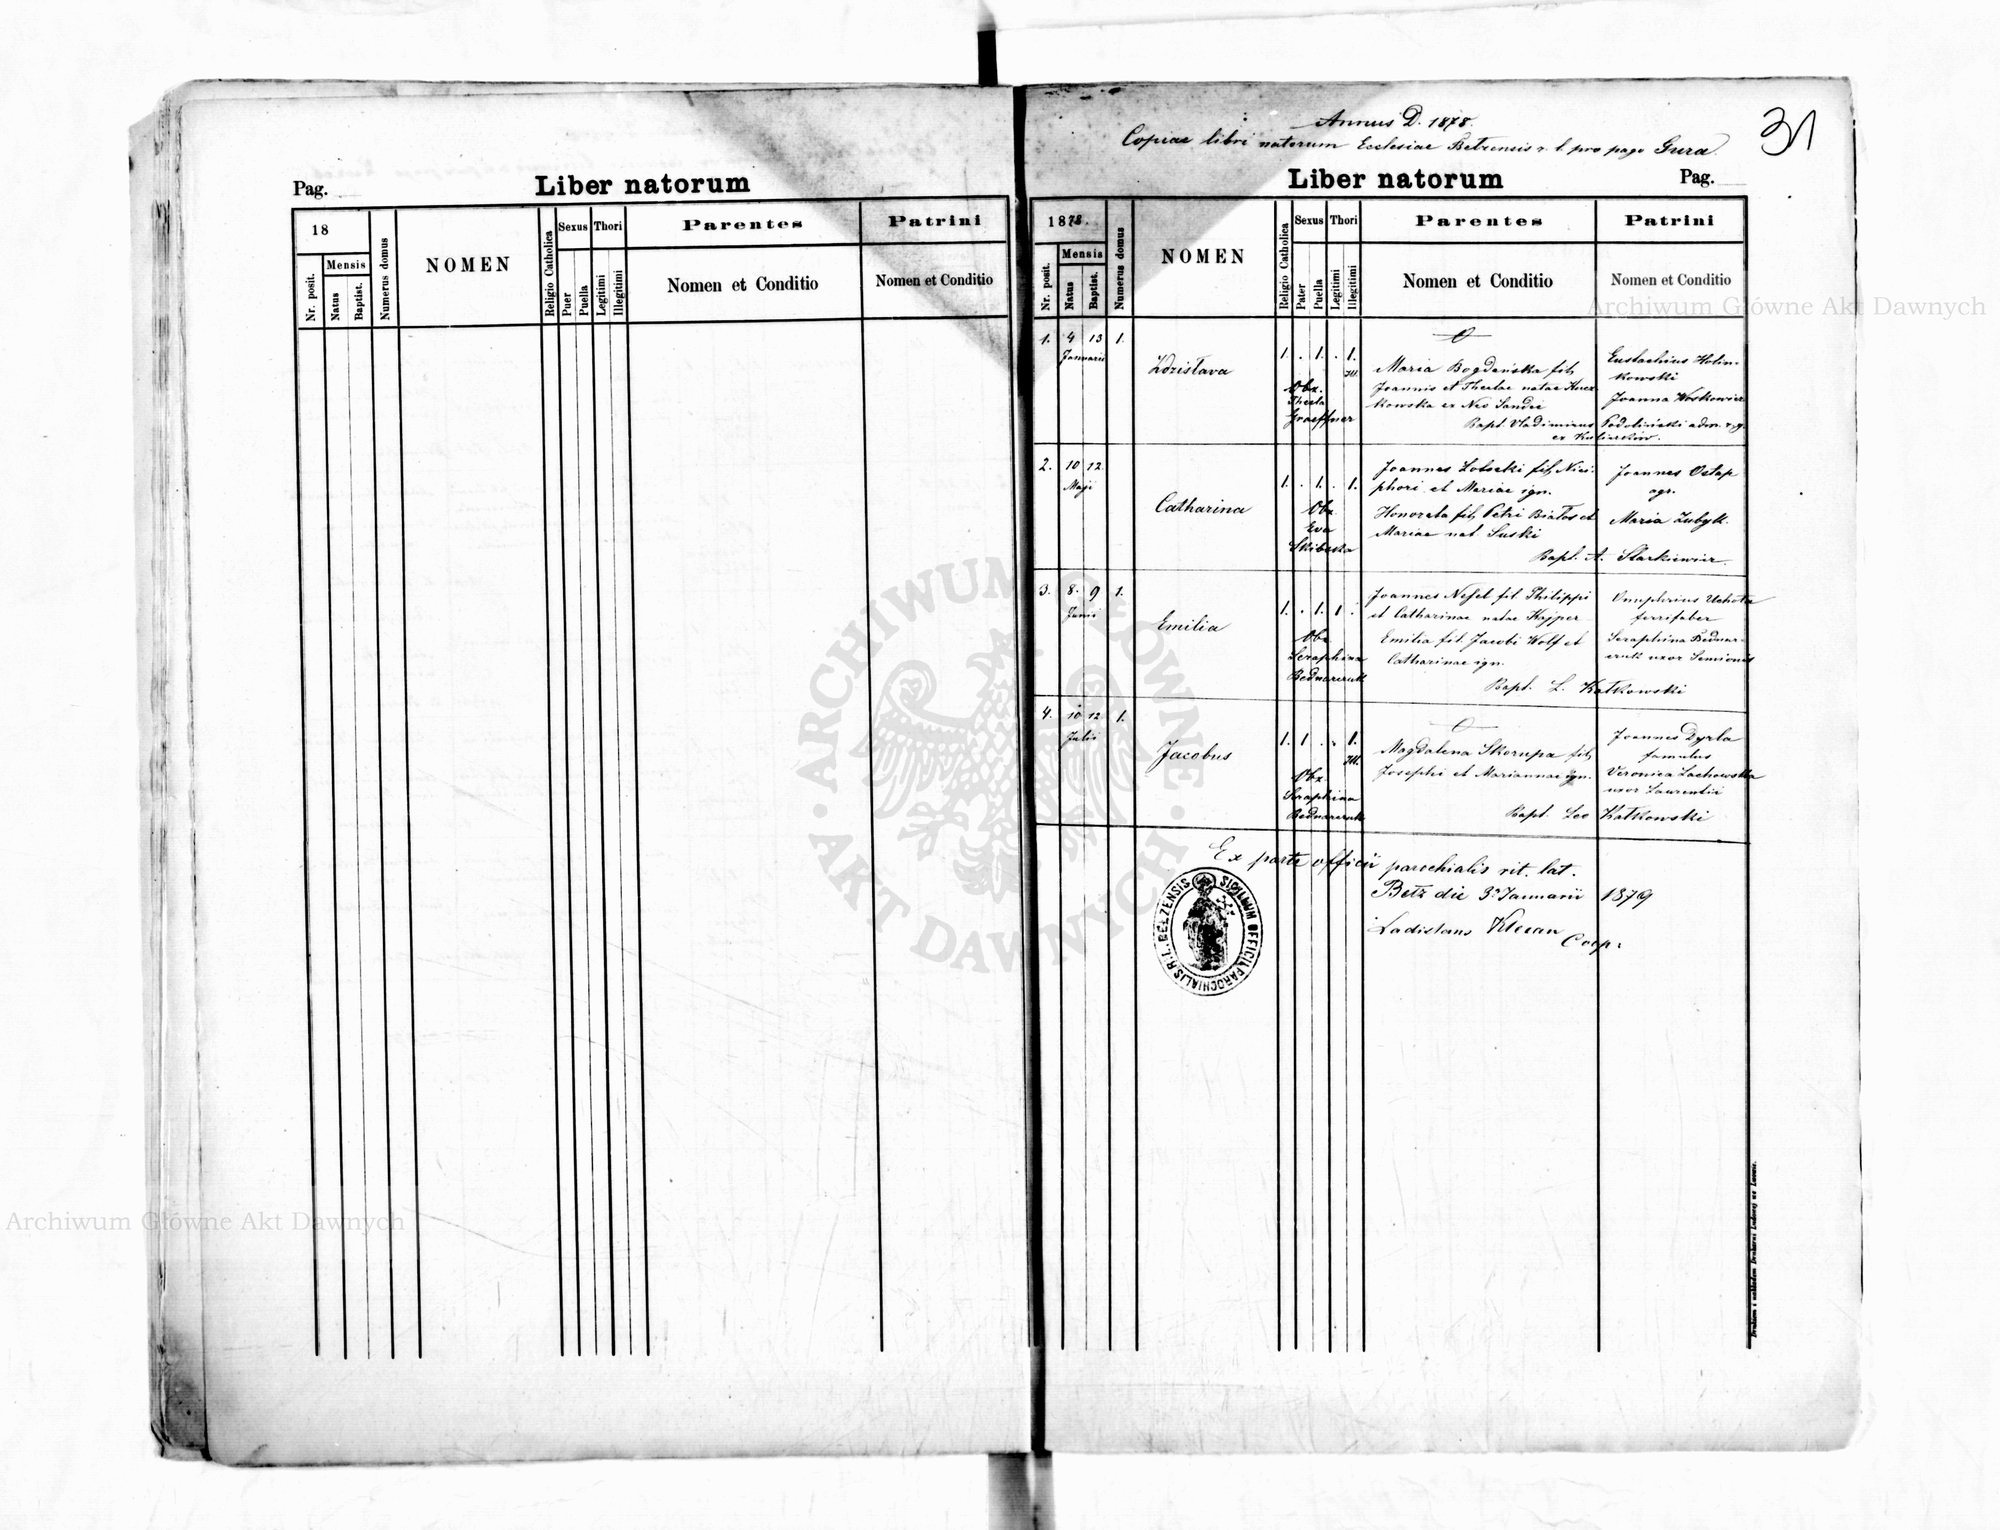 Pag.
Liber natorum
18
Nr. posit.
Mensis
Natus
Baptist.
Numerus domus
NOMEN
Religio Catholica
Sexus
Puer
Puella
Thori
Legitimi
Illegitimi
Parentes
Nomen et Conditio
Patrini
Nomen et Conditio
31
Annus D. 1878.
Copiae libri natorum Ecclesiae Belzensis r. l. pro pago Gura.
Liber natorum
Pag.
1878.
Nr. posit.
Mensis
Natus
Baptist.
Numerus domus
NOMEN
Religio Catholica
Sexus
Pater
Puella
Thori
Legitimi
Illegitimi
Parentes
Nomen et Conditio
Patrini
Nomen et Conditio
1. 4 13 1.
Januarii
Zdzislava
1. . 1. . 1.
Ill.
Obx.
Thecla
Graeffner
Maria Bogdańska fil.
Joannis et Theclae natae
kowska ex Neo Sandec
Bapt. Vladimirus Podoliński adm. r. g.
ex
Eustachius
kowski
Joanna
2. 10 12.
Maji
Catharina
1. . 1. . 1.
Obx
Eva
Skibecka
Joannes fil. Nici-
phori et Mariae ign.
Honorata fil. Petri Białos et
Mariae nat. Suski
Bapt. A. Starkiewicz.
Joannes Ostap
agr.
Maria Zubyk.
3. 8. 9 1.
Junii
Emilia
1. . 1. 1. .
Obx
Seraphina
Bednarczuk
Joannes Nessel fil. Philippi
et Catharinae natae Kajper
Emilia fil. Jacobi Wolf et
Catharinae ign.
Bapt. L. Kałkowski
Onuphrius Uchota
ferrifaber
Seraphina Bednar-
czuk uxor Semionis
4. 10 12 1.
Julii
Jacobus
1. 1 . . 1.
Ill.
Obx.
Seraphina
Bednarczuk
Magdalena Skorupa fil.
Josephi et Mariannae ign.
Bapt. Leo Kałkowski
Joannes Dyrla
famulus
Veronica Lachowska
uxor Laurentii
Ex parte officii parochialis rit. lat.
Bełz die 3. Januarii 1879
Ladislaus
Coop:
SIGILLUM OFFICII PAROCHIALIS R. L. BEŁZENSIS
Drukiem i nakładem Drukarni Ludowej we Lwowie.
Archiwum Główne Akt Dawnych
Archiwum Główne Akt Dawnych
ARCHIWUM GŁÓWNE AKT DAWNYCH